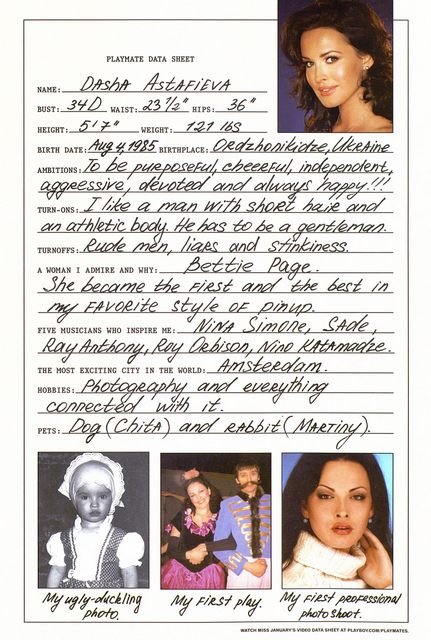 PLAYMATE DATA SHEET
NAME: DASHA ASTAFIEVA
BUST: 34D WAIST: 23 1/2" HIPS: 36"
HEIGHT: 5'7" WEIGHT: 121 lbs
BIRTH DATE: Aug 4, 1985 BIRTHPLACE: Ordzhonikidze, Ukraine
AMBITIONS: To be purposeful, cheerful, independent,
aggressive, devoted and always happy!!!
TURN-ONS: I like a man with short hair and
an athletic body. He has to be a gentleman.
TURNOFFS: Rude men, liars and stinkiness.
A WOMAN I ADMIRE AND WHY: Bettie Page.
She became the first and the best in
my favorite style of pinup.
FIVE MUSICIANS WHO INSPIRE ME: Nina Simone, Sade,
Ray Anthony, Roy Orbison, Nino Katamadze.
THE MOST EXCITING CITY IN THE WORLD: Amsterdam.
HOBBIES: Photography and everything
connected with it.
PETS: Dog (Chita) and rabbit (Martiny).
My ugly-duckling
photo.
My first play.
My first professional
photo shoot.
WATCH MISS JANUARY'S VIDEO DATA SHEET AT PLAYBOY.COM/PLAYMATES.